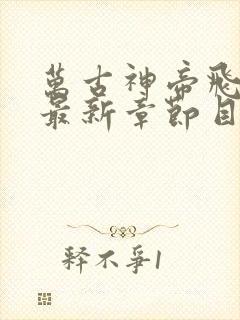 萬古神帝飛
最新章節目
释不爭1